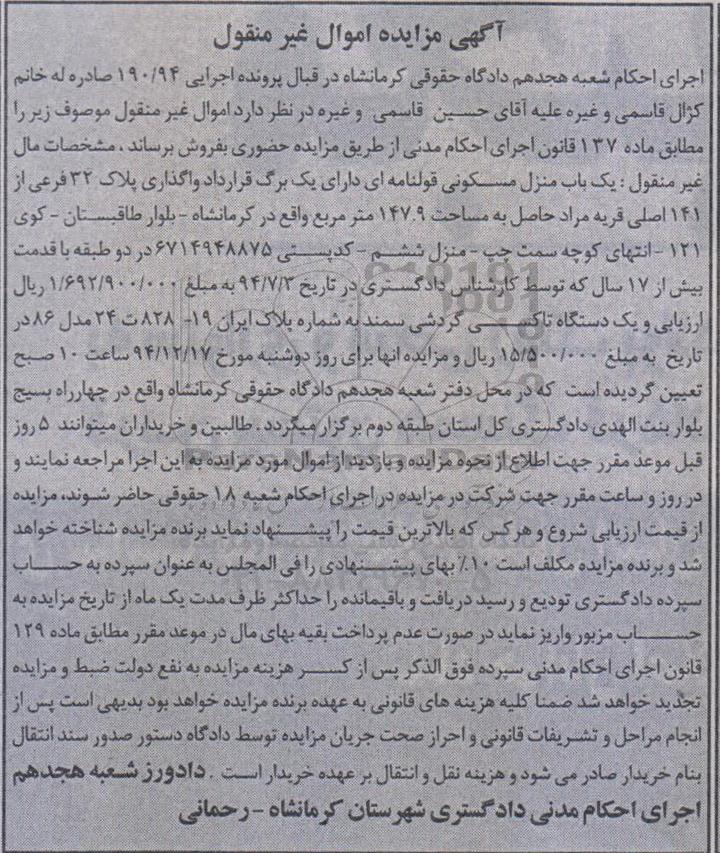 آگهی مزایده اموال غیر منقول
اجرای احکام شعبه هجدهم دادگاه حقوقی کرمانشاه در قبال پرونده اجرایی ۱۹۰/۹۴ صادره له خانم
کژال قاسمی و غیره علیه آقای حسین قاسمی و غیره در نظر دارد اموال غیر منقول موصوف زیر را
مطابق ماده ۱۳۷ قانون اجرای احکام مدنی از طریق مزایده حضوری بفروش برساند ، مشخصات مال
غیر منقول : یک باب منزل مسکونی قولنامه ای دارای یک برگ قرارداد واگذاری پلاک ۳۲ فرعی از
۱۴۱ اصلی قریه مراد حاصل به مساحت ۱۴۷.۹ متر مربع واقع در کرمانشاه - بلوار طاقبستان - کوی
۱۲۱ - انتهای کوچه سمت چپ - منزل ششم - کدپستی ۶۷۱۴۹۴۸۸۷۵ در دو طبقه با قدمت
بیش از ۱۷ سال که توسط کارشناس دادگستری در تاریخ ۹۴/۷/۲ به مبلغ ۱/۶۹۲/۹۰۰/۰۰۰ ریال
ارزیابی و یک دستگاه تاکسی گردشی سمند به شماره پلاک ایران ۱۹- ۸۲۸ ت ۲۴ مدل ۸۶ در
تاریخ به مبلغ ۱۵/۵۰۰/۰۰۰ ریال و مزایده انها برای روز دوشنبه مورخ ۹۴/۱۲/۱۷ ساعت ۱۰ صبح
تعیین گردیده است که در محل دفتر شعبه هجدهم دادگاه حقوقی کرمانشاه واقع در چهارراه بسیج
بلوار بنت الهدی دادگستری کل استان طبقه دوم برگزار میگردد . طالبین و خریداران میتوانند ۵ روز
قبل موعد مقرر جهت اطلاع از نحوه مزایده و بازدید از اموال مورد مزایده به این اجرا مراجعه نمایند و
در روز و ساعت مقرر جهت شرکت در مزایده در اجرای احکام شعبه ۱۸ حقوقی حاضر شوند، مزایده
از قیمت ارزیابی شروع و هرکس که بالاترین قیمت را پیشنهاد نماید برنده مزایده شناخته خواهد
شد و برنده مزایده مکلف است ۱۰٪ بهای پیشنهادی را فی المجلس به عنوان سپرده به حساب
سپرده دادگستری تودیع و رسید دریافت و باقیمانده را حداکثر ظرف مدت یک ماه از تاریخ مزایده به
حساب مزبور واریز نماید در صورت عدم پرداخت بقیه بهای مال در موعد مقرر مطابق ماده ۱۲۹
قانون اجرای احکام مدنی سپرده فوق الذکر پس از کسر هزینه مزایده به نفع دولت ضبط و مزایده
تجدید خواهد شد ضمنا کلیه هزینه های قانونی به عهده برنده مزایده خواهد بود بدیهی است پس از
انجام مراحل و تشریفات قانونی و احراز صحت جریان مزایده توسط دادگاه دستور صدور سند انتقال
بنام خریدار صادر می شود و هزینه نقل و انتقال بر عهده خریدار است . دادورز شعبه هجدهم
اجرای احکام مدنی دادگستری شهرستان کرمانشاه - رحمانی